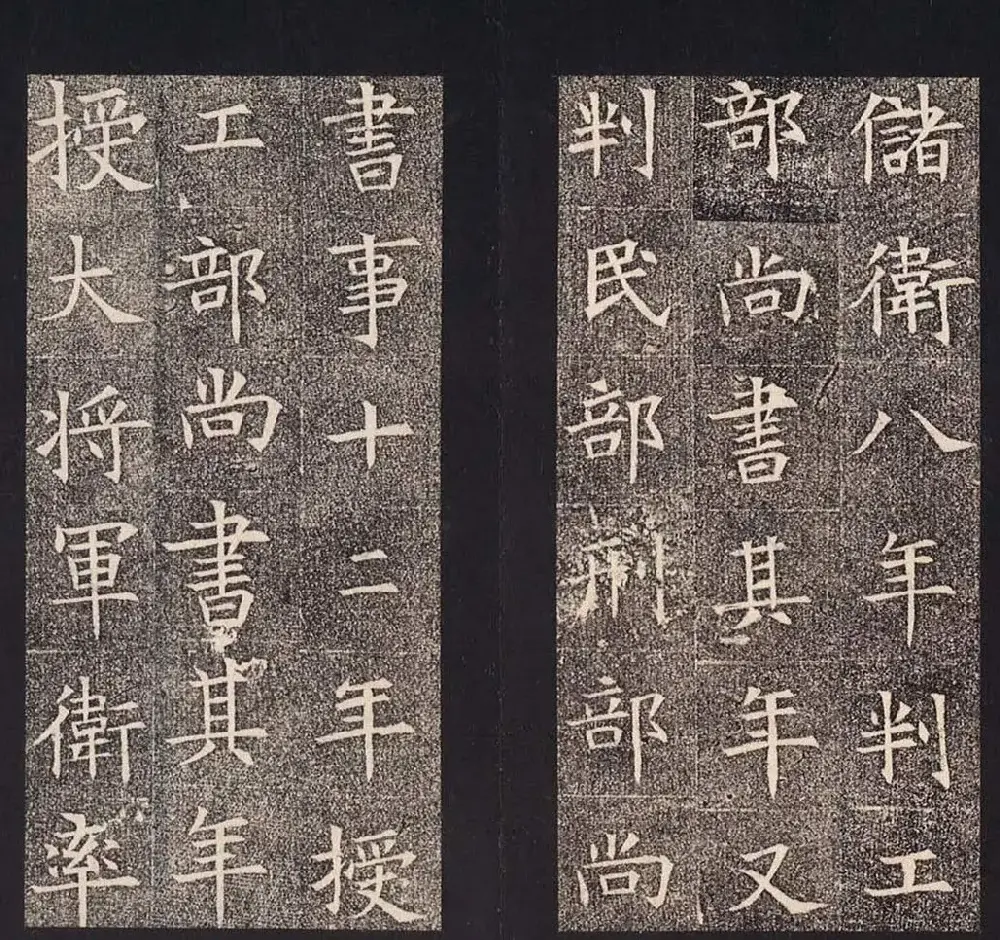 儲衛八年判工
部尚書其年又
判民部刑部尚
書事十二年授
工部尚書其年
授大将軍衛率